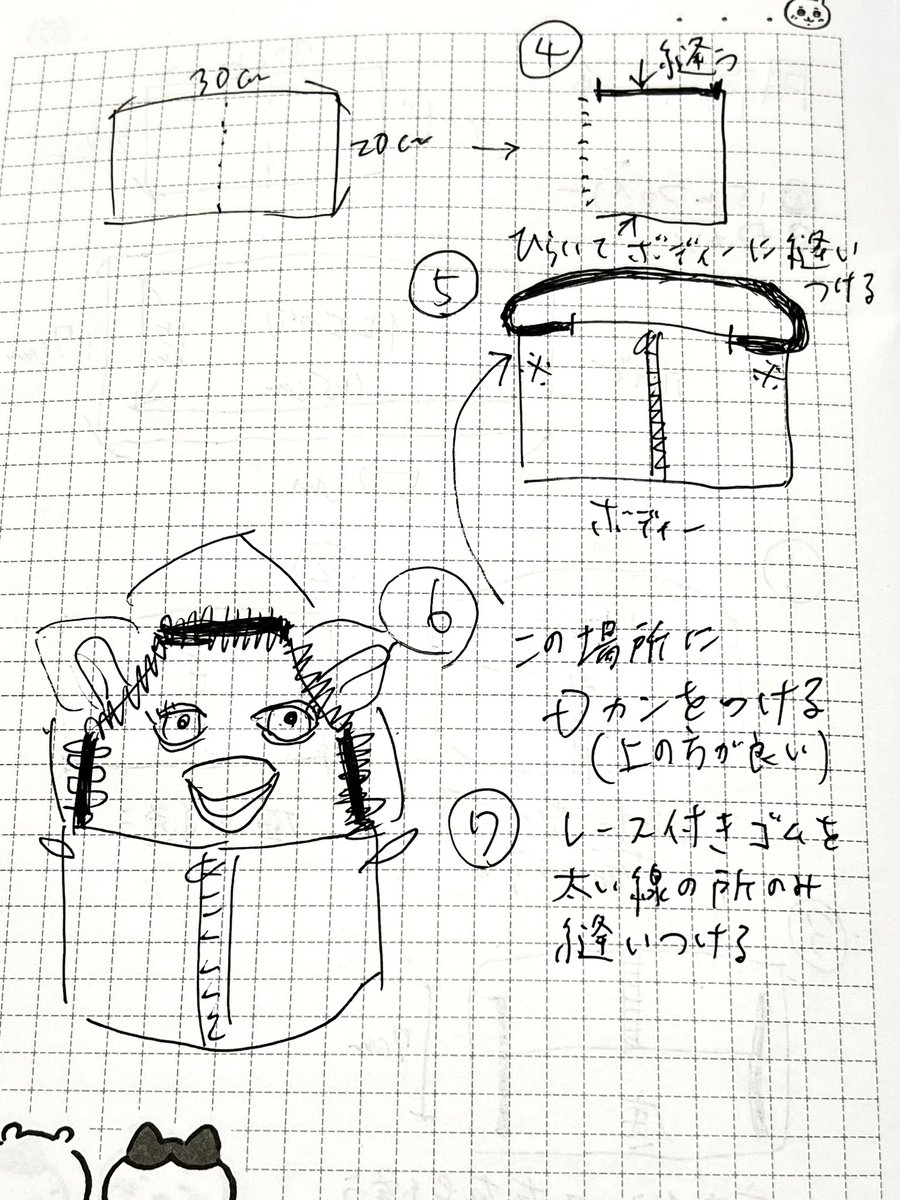 30cm
20cm
④
縫う
ひらいてボディーに縫い
つける
⑤
※
※
ボディー
⑥
この場所に
Dカンをつける
(上の方が良い)
⑦
レース付きゴムを
太い線の所のみ
縫いつける